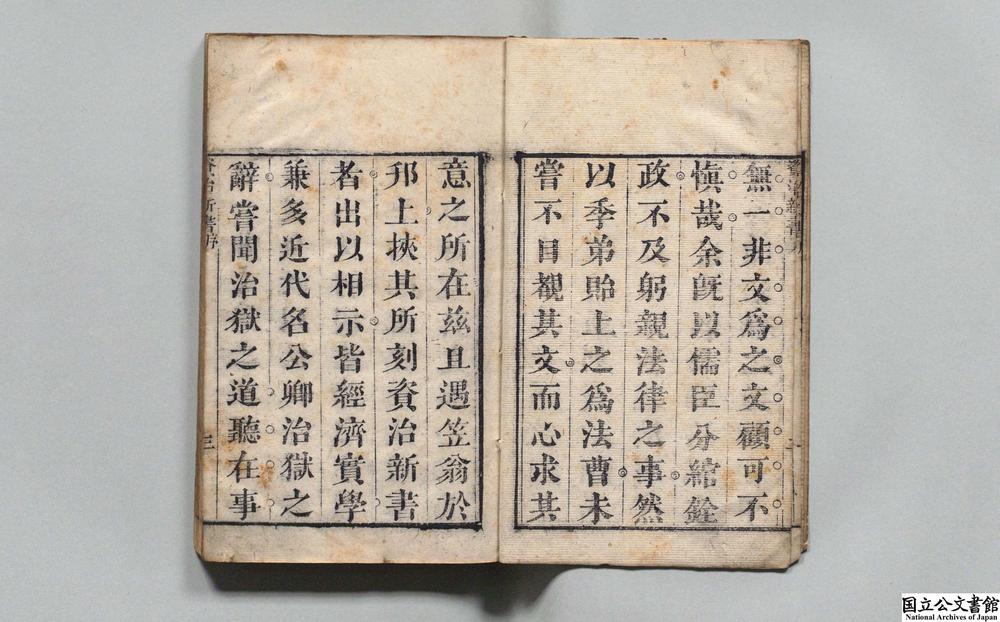 無一非文爲之文顧可不
愼哉余旣以儒臣分綰銓
政不及躬親法律之事然
以季弟貽上之爲法曹未
嘗不目覩其文而心求其
意之所在兹且遇笠翁於
邗上挾其所刻資治新書
者出以相示皆經濟實學
兼多近代名公卿治獄之
辭嘗聞治獄之道聽在事
資治新書序
三
国立公文書館
National Archives of Japan